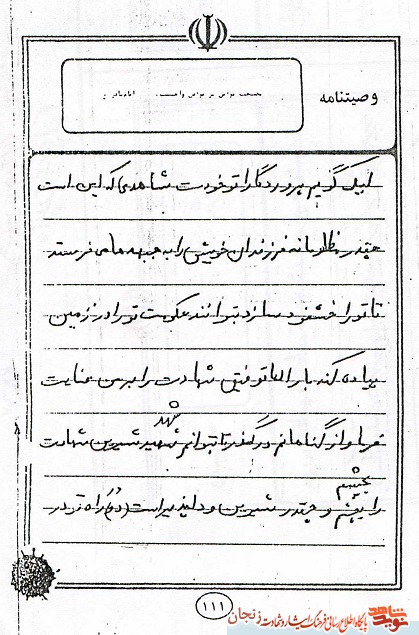 وصیتنامه
لبیک گویم پروردگارا تو خودت شاهدی که این است
چقدر مظلومانه فرزندان خویش را به جبهه ها می فرستد
تا تو را خشنود سازد بتوانند حکومت تو را در زمین
پیاده کند بارالها توفیق شهادت را بر من عنایت
فرما و از گناهانم درگذر تا بتوانم شهد شیرین شهادت
را بچشم و چقدر شیرین و دلپذیر است (در) راه تو در
۱۱۱
پایگاه اطلاع رسانی فرهنگ ایثار و شهادت زنجان
نوید شاهد